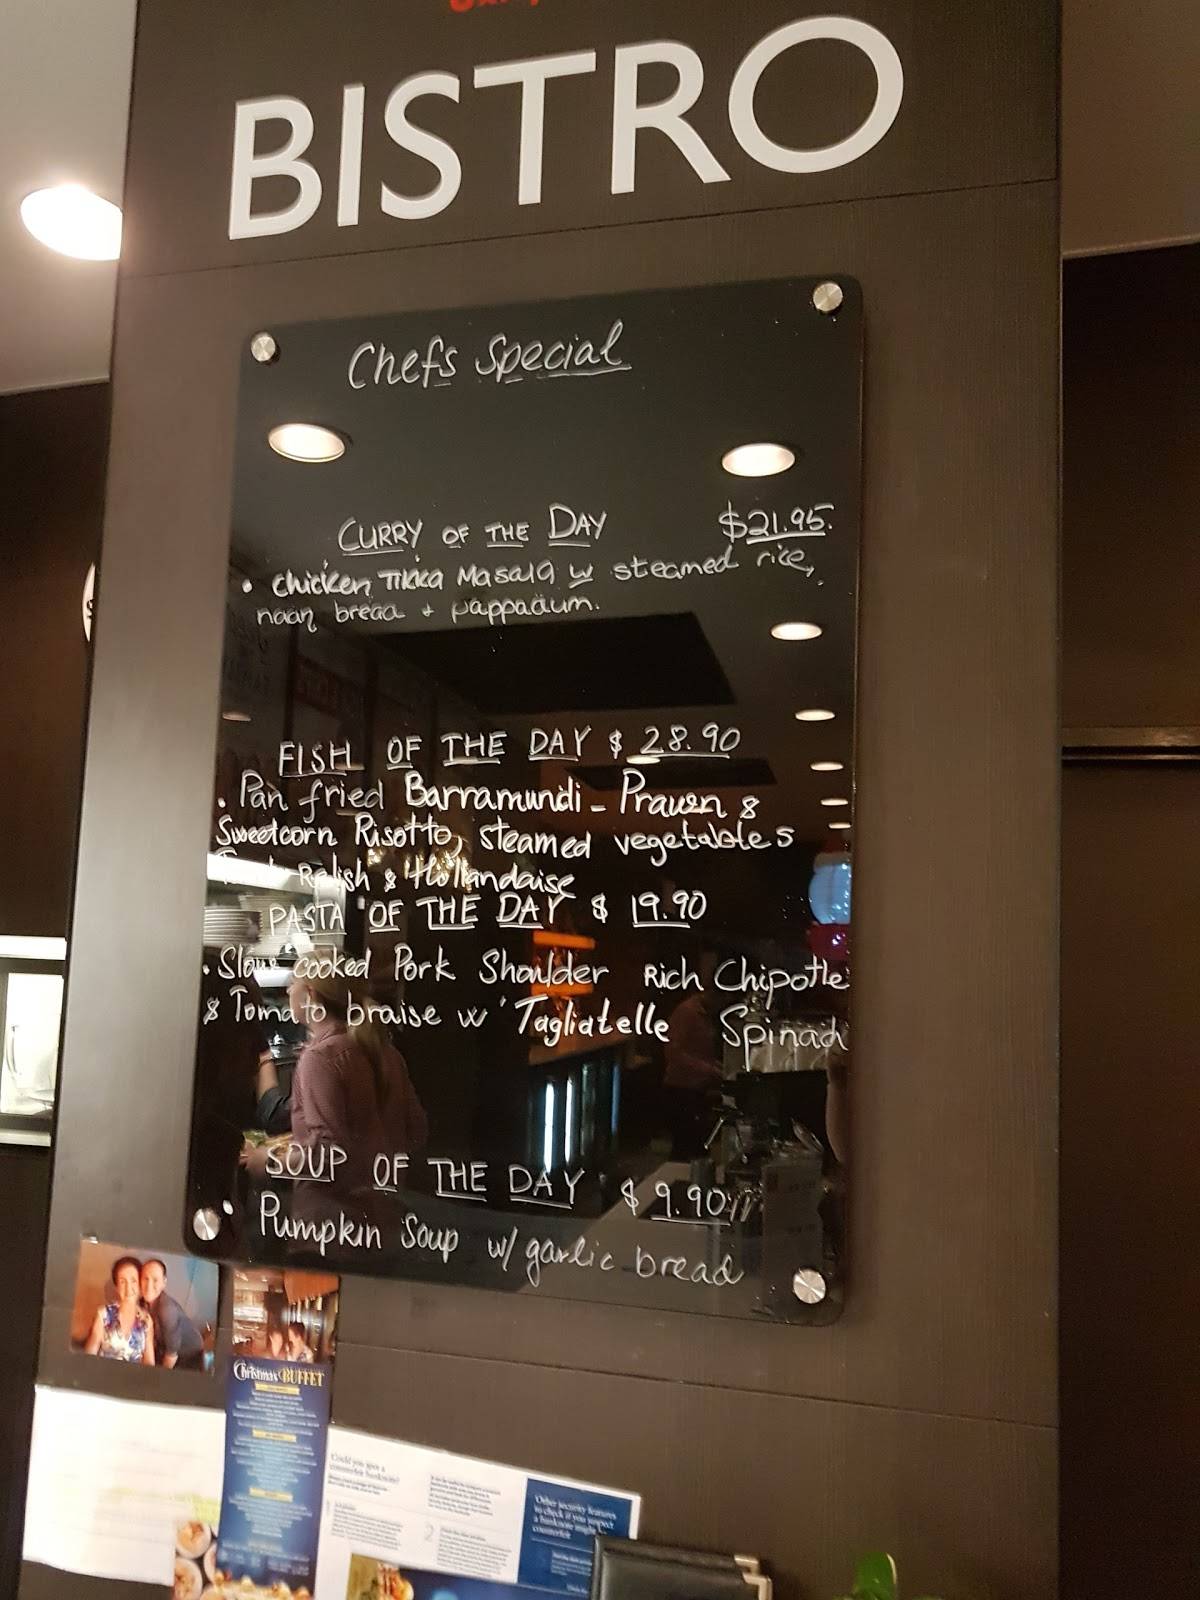 BISTRO
Chefs Special
CURRY OF THE DAY $21.95.
• Chicken Tikka Masala w steamed rice,
naan bread + pappadum.
FISH OF THE DAY $ 28.90
• Pan fried Barramundi - Prawn &
Sweetcorn Risotto, steamed vegetables
Relish & Hollandaise
PASTA OF THE DAY $ 19.90
• Slow cooked Pork Shoulder Rich Chipotle
& Tomato braise w' Tagliatelle Spinach
SOUP OF THE DAY $ 9.90
• Pumpkin Soup w/ garlic bread
Christmas BUFFET
Could you spot a
counterfeit banknote?
2
Other security features
to check if you suspect
a banknote might be
counterfeit